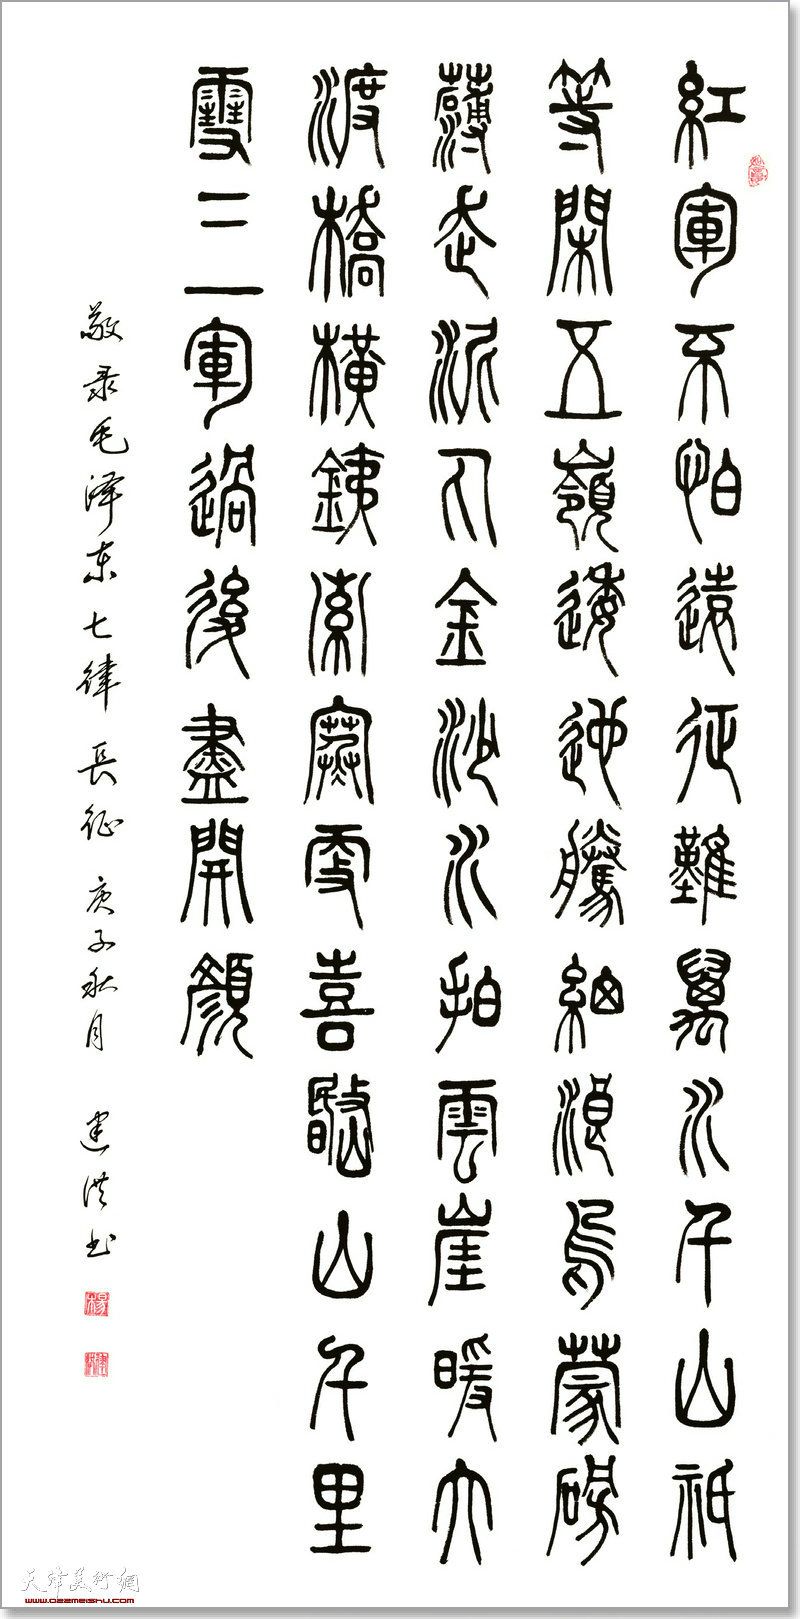 紅軍不怕遠征難萬水千山祇
等閑五嶺逶迤騰細浪烏蒙磅
薄走泥丸金沙水拍雲崖暖大
渡橋橫鐵索寒更喜岷山千里
雪三軍過後盡開顏
敬录毛泽东七律 長征 庚子秋月 建洪书
天津美術網
www.022meishu.com